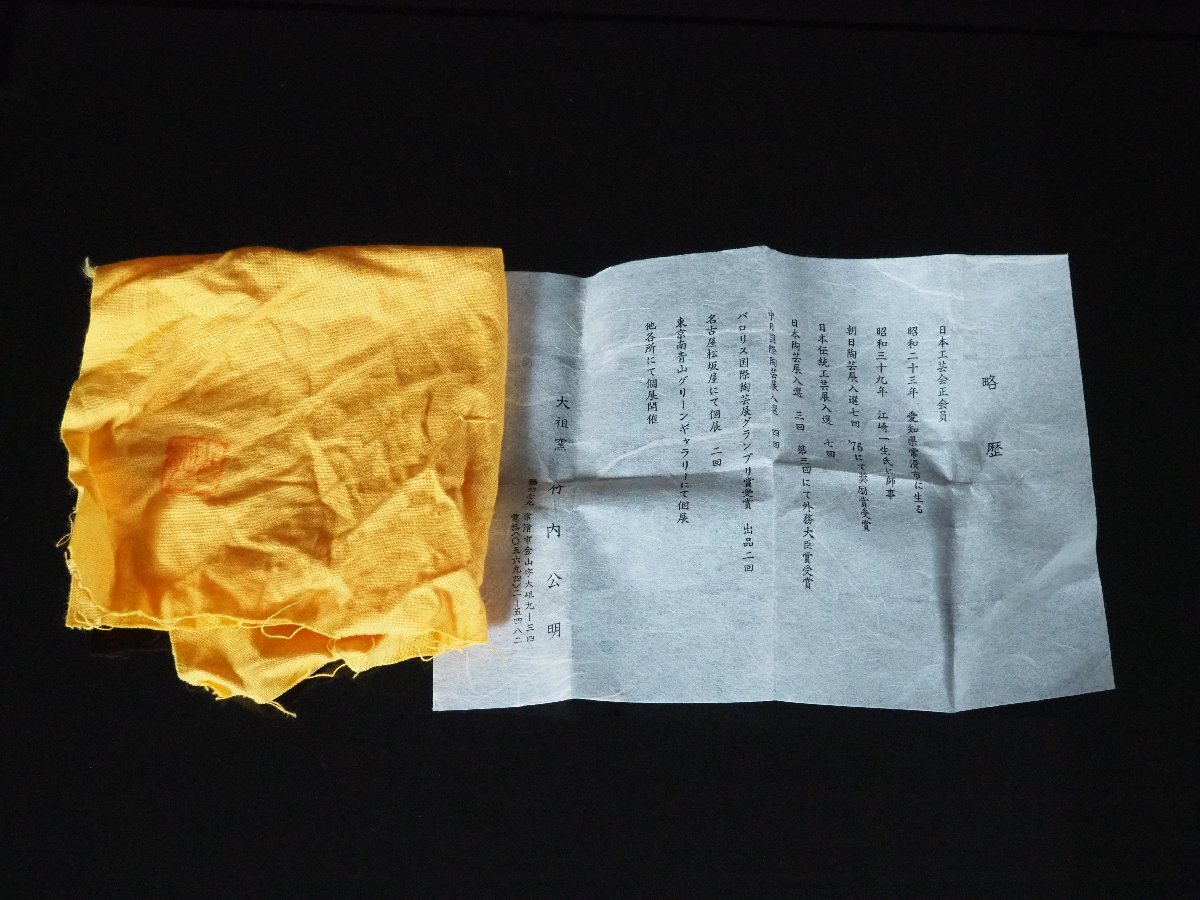 略歴
日本工芸会正会員
昭和二十三年 愛知県常滑市に生る
昭和三十九年 江崎一生氏に師事
朝日陶芸展入選七回 '76にて奨励賞受賞
日本伝統工芸展入選 七回
日本陶芸展入選 三回 第三回にて外務大臣賞受賞
国際陶芸展入選 四回
バロリス国際陶芸展グランプリ賞受賞 出品二回
名古屋松坂屋にて個展 二回
東京南青山グリーンギャラリーにて個展
他各所にて個展開催
大祖窯 竹内公明
常滑市金山字大根九ー三四
電話(〇五六九四)二ー五四八二